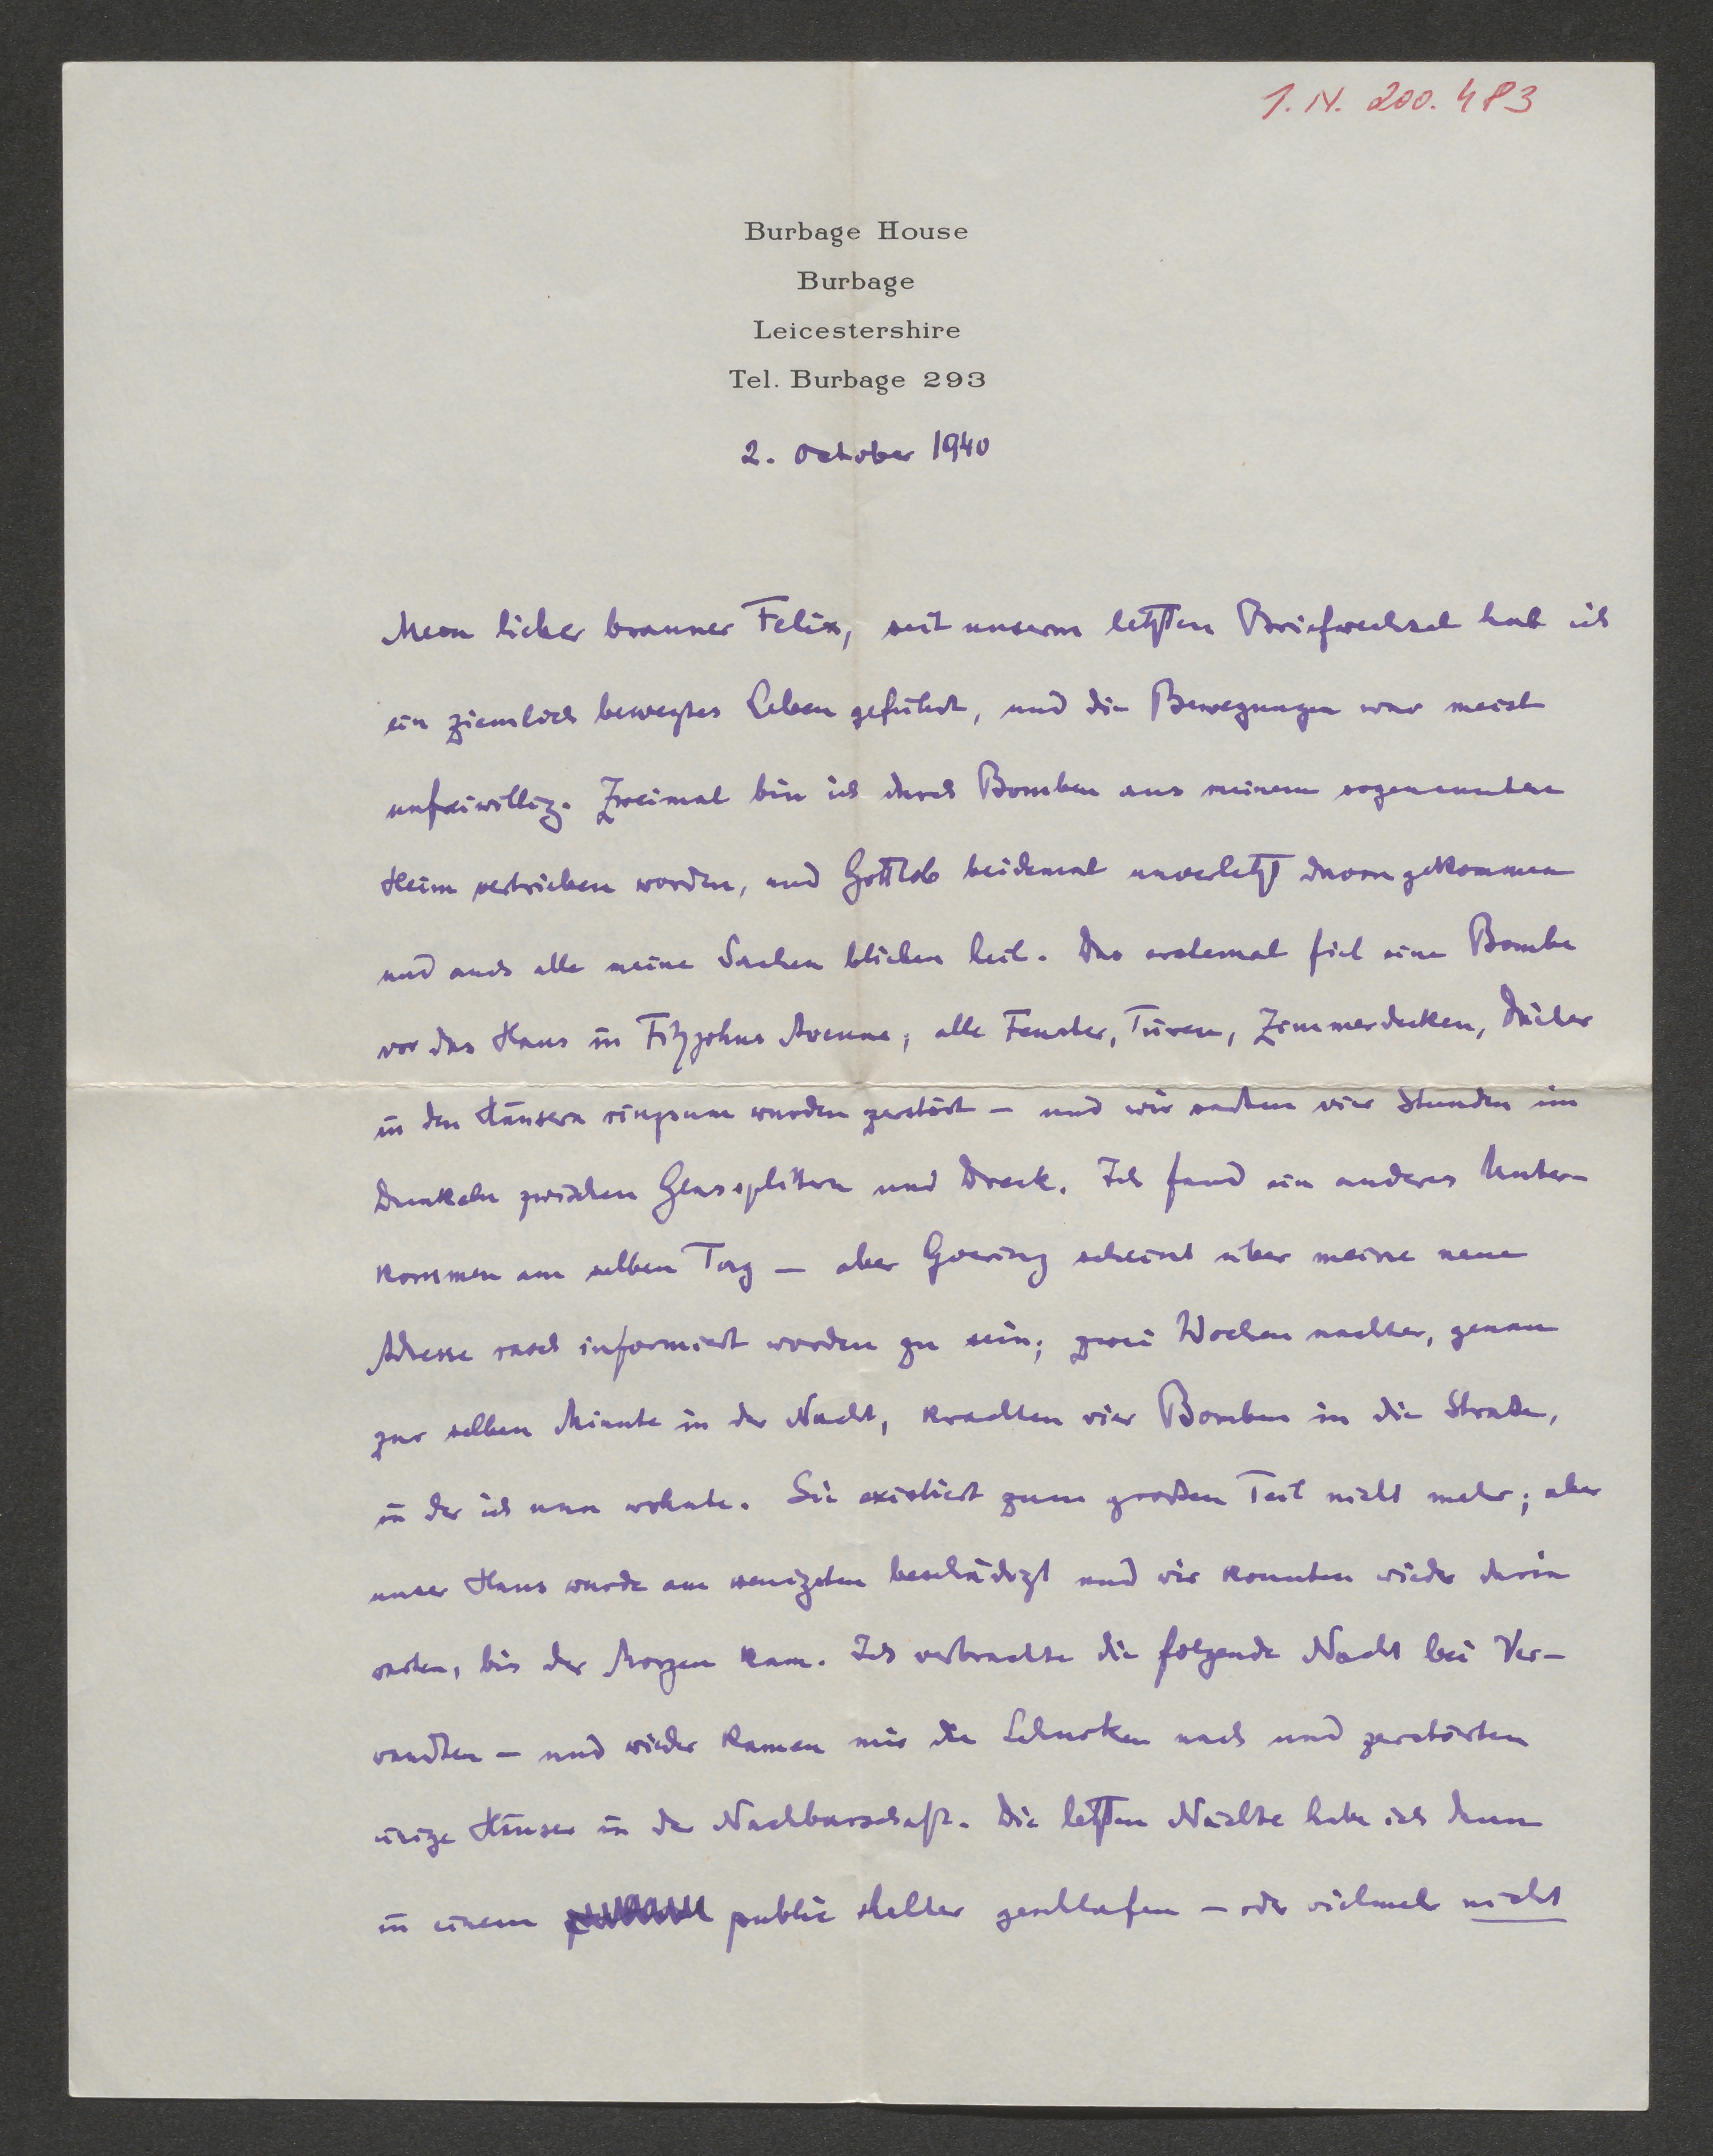 I. N. 200.483
Burbage House
Burbage
Leicestershire
Tel. Burbage 293
2. October 1940
Mein lieber brauner Felix, seit unserm letzten Briefwechsel hab ich
ein ziemlich bewegtes Leben geführt, und die Bewegungen war meist
unfreiwillig. Zweimal bin ich durch Bomben aus meinem sogenannten
Heim vertrieben worden, und Gottlob beidemal unverletzt davongekommen
und auch alle meine Sachen blieben heil. Das erstemal fiel eine Bombe
vor das Haus in Fitzjohns Avenue; alle Fenster, Türen, Zimmerdecken, Dächer
in den Häusern ringsum wurden zerstört – und wir sassen vier Stunden im
Dunkeln zwischen Glassplittern und Dreck. Ich fand ein anderes Unter-
kommen am selben Tag – aber Goering scheint über meine neue
Adresse rasch informiert worden zu sein; zwei Wochen nachher, genau
zur selben Minute in der Nacht, krachten vier Bomben in die Strasse,
in der ich nun wohnte. Sie existiert zum grossen Teil nicht mehr; aber
unser Haus wurde am wenigsten beschädigt und wir konnten wieder darin
warten, bis der Morgen kam. Ich verbrachte die folgende Nacht bei Ver-
wandten – und wieder kamen mir die Schurken nach und zerstörten
einige Häuser in der Nachbarschaft. Die letzten Nächte habe ich dann
in einem public shelter geschlafen – oder vielmehr nicht